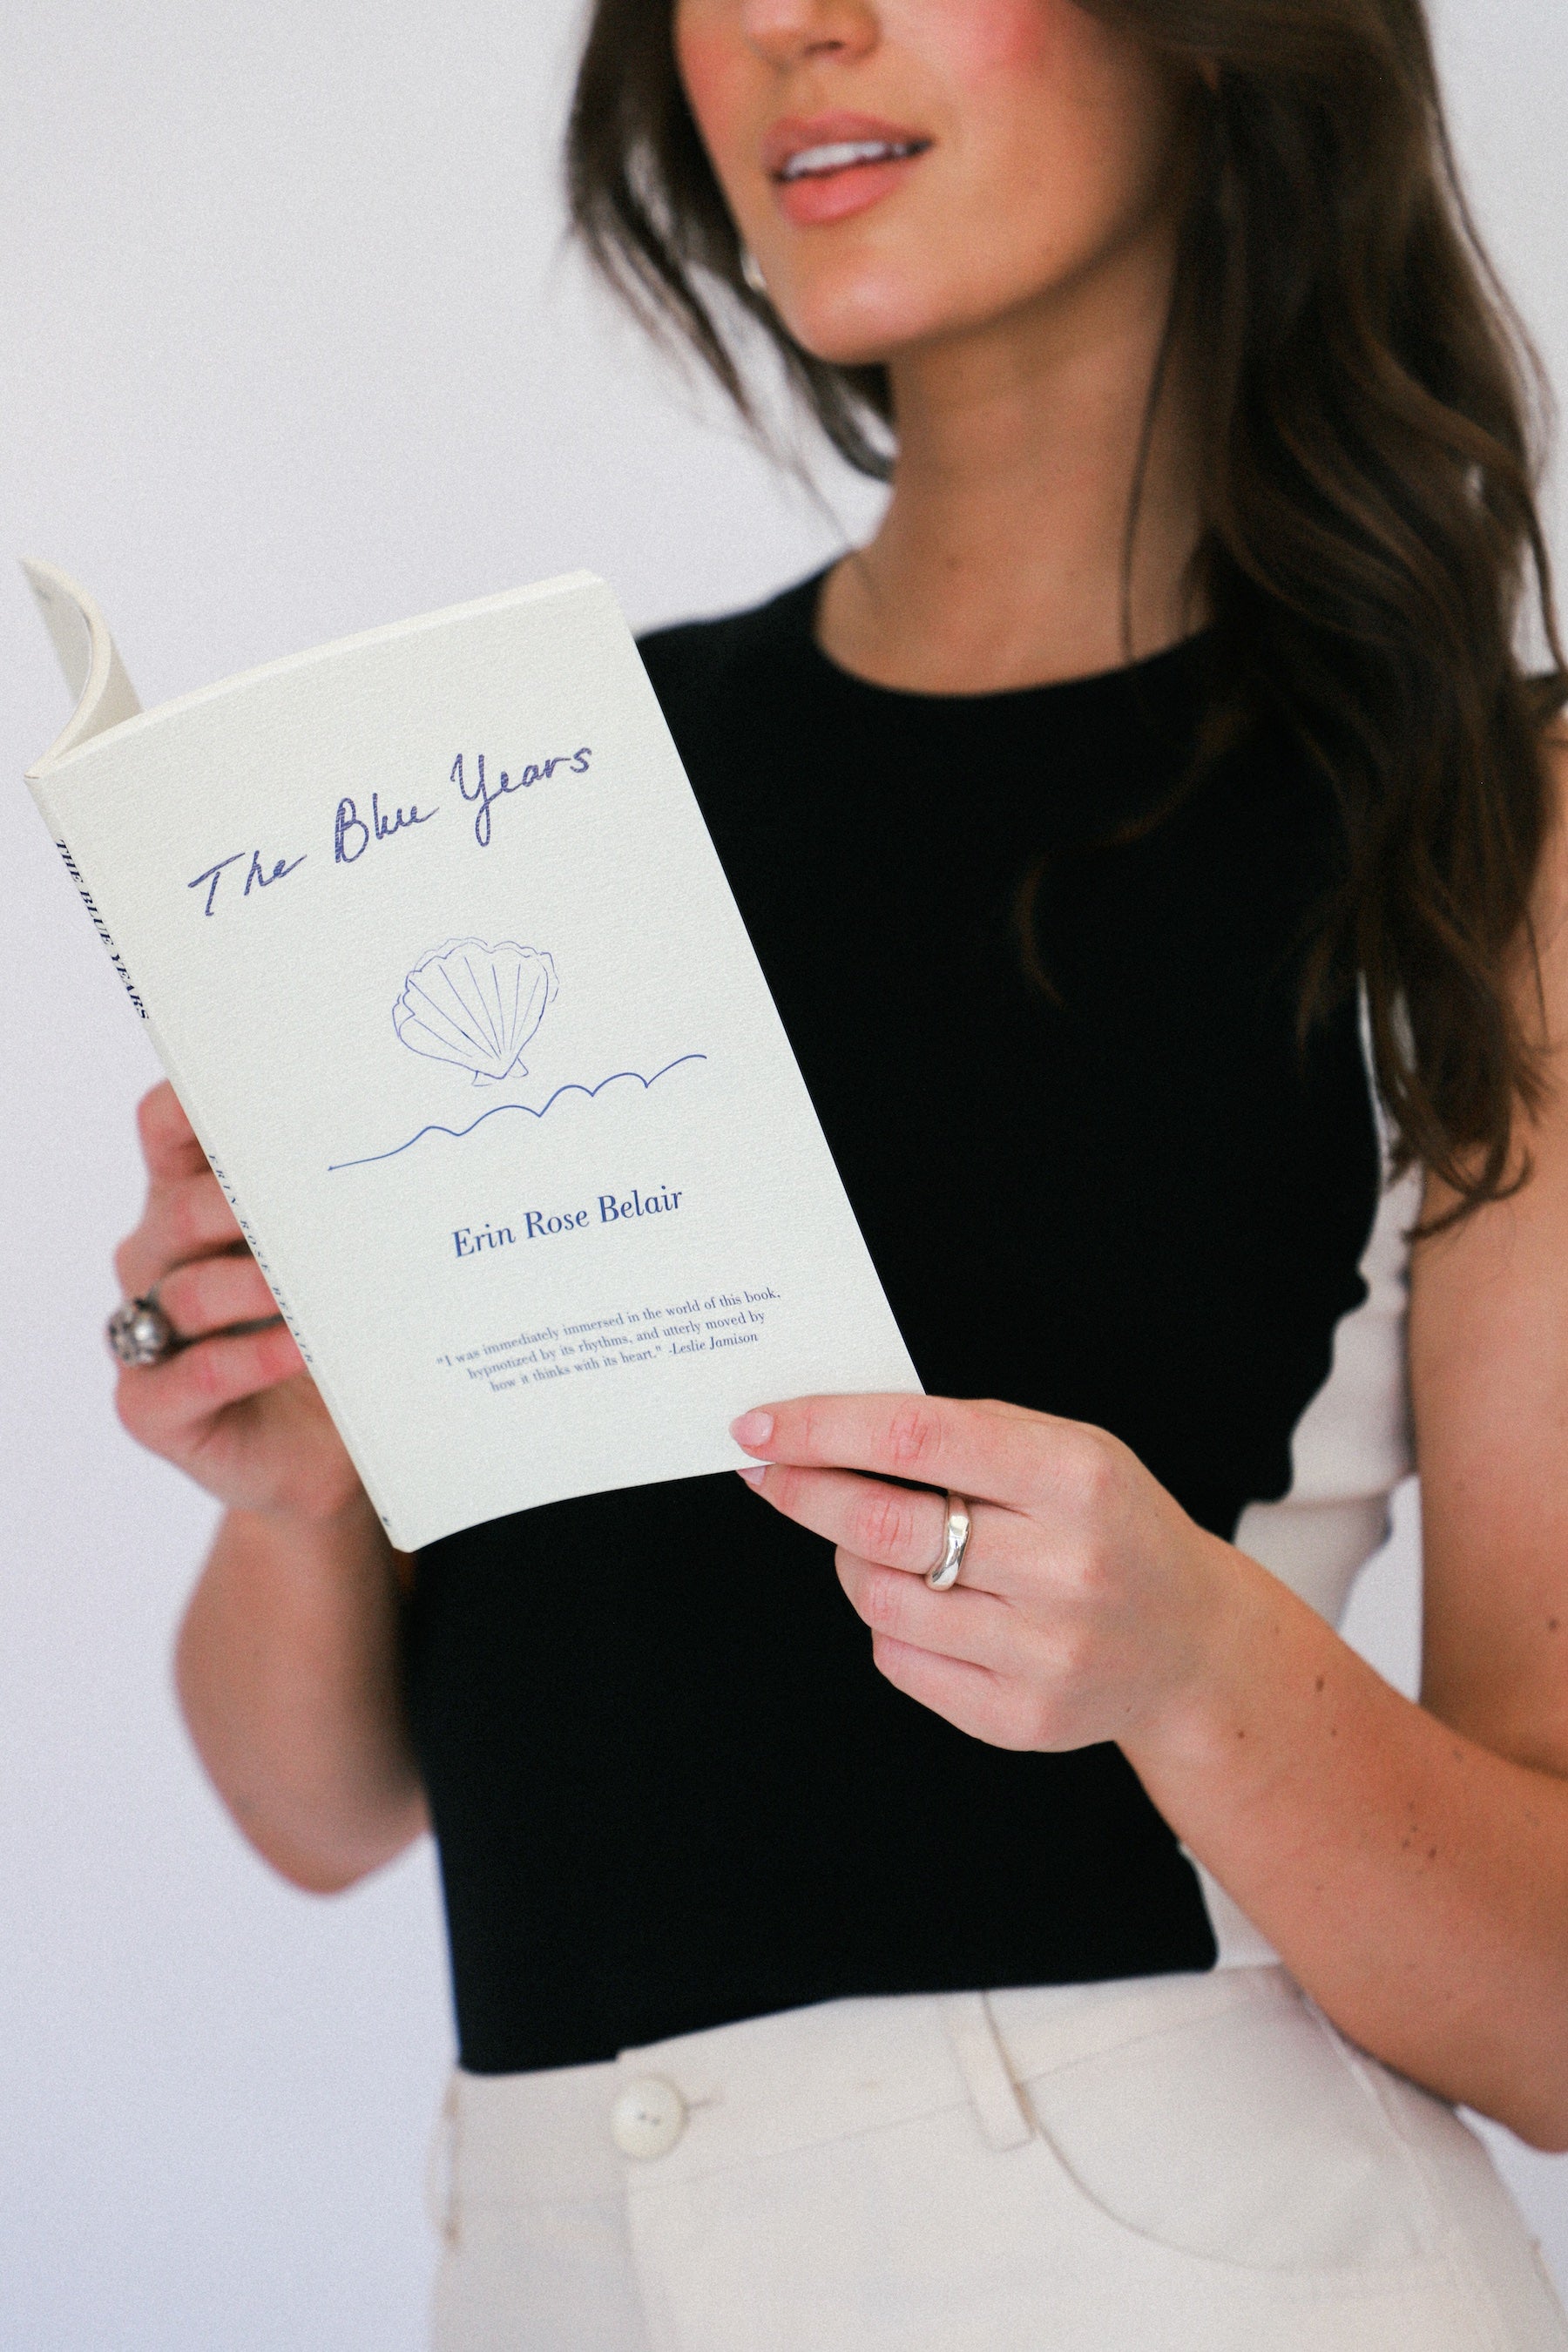 The Blue Years
Erin Rose Belair
"I was immediately immersed in the world of this book,
hypnotized by its rhythms, and utterly moved by
how it thinks with its heart." -Leslie Jamison
THE BLUE YEARS
ERIN ROSE BELAIR